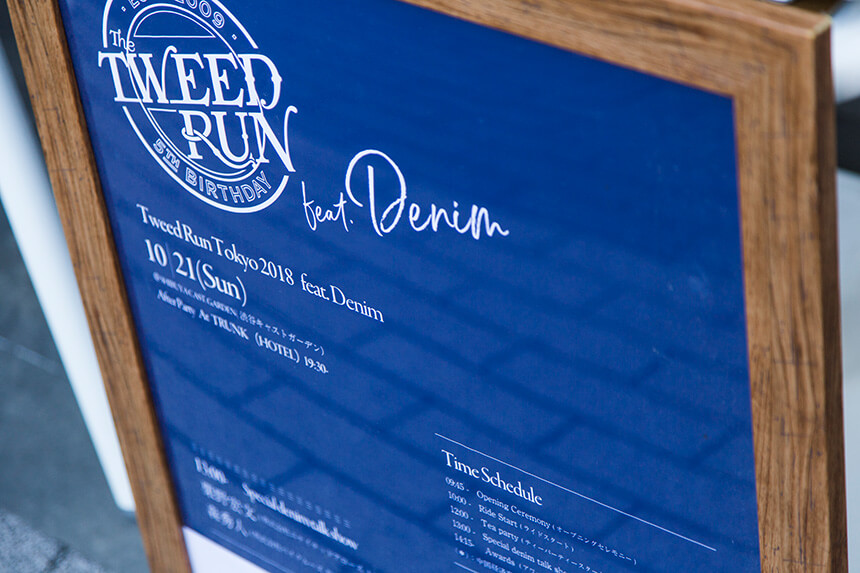 The
TWEED
RUN
2009
5TH BIRTHDAY
feat. Denim
Tweed Run Tokyo 2018 feat. Denim
10 | 21(Sun)
@SHIBUYA CAST GARDEN(渋谷キャストガーデン)
After Party At TRUNK (HOTEL) 19:30-
13:00- Special denim talk show
Time Schedule
09:45 - Opening Ceremony (オープニングセレモニー)
10:00 - Ride Start (ライドスタート)
12:00 - Tea party (ティーパーティースター
13:00 - Special denim talk sho
14:15 - Awards (アワ